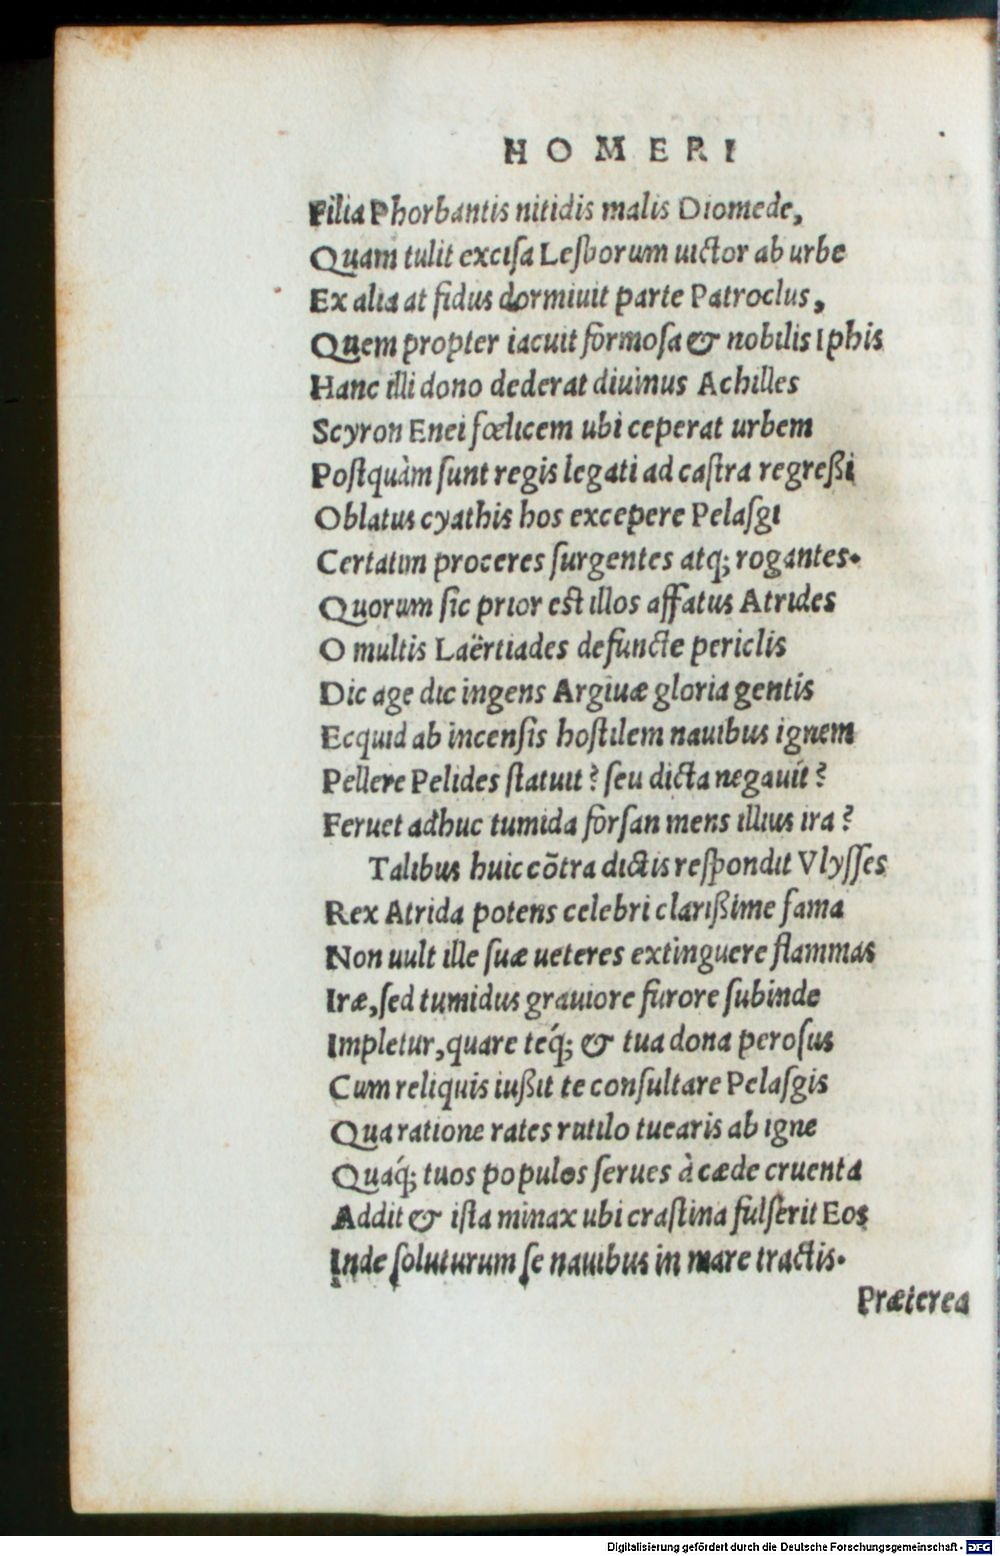 HOMERI
Filia Phorbantis nitidis malis Diomede,
Quam tulit excisa Lesborum uictor ab urbe
Ex alia at fidus dormiuit parte Patroclus,
Quem propter iacuit formosa & nobilis Iphis
Hanc illi dono dederat diuinus Achilles
Scyron Enei fœlicem ubi ceperat urbem
Postquàm sunt regis legati ad castra regreßi
Oblatus cyathis hos excepere Pelasgi
Certatim proceres surgentes atq; rogantes.
Quorum sic prior est illos affatus Atrides
O multis Laërtiades defuncte periclis
Dic age dic ingens Argiuæ gloria gentis
Ecquid ab incensis hostilem nauibus ignem
Pellere Pelides statuit? seu dicta negauit?
Feruet adhuc tumida forsan mens illius ira?
Talibus huic cõtra dictis respondit Vlysses
Rex Atrida potens celebri clarißime fama
Non uult ille suæ ueteres extinguere flammas
Iræ, sed tumidus grauiore furore subinde
Impletur, quare teq́; & tua dona perosus
Cum reliquis iußit te consultare Pelasgis
Qua ratione rates rutilo tuearis ab igne
Quaq́; tuos populos serues à cæde cruenta
Addit & ista minax ubi crastina fulserit Eos
Inde soluturum se nauibus in mare tractis.
Præterea
Digitalisierung gefördert durch die Deutsche Forschungsgemeinschaft - DFG